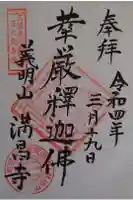 奉拝
令和四年
三月十九日
華厳釋迦佛
義明山
満昌寺